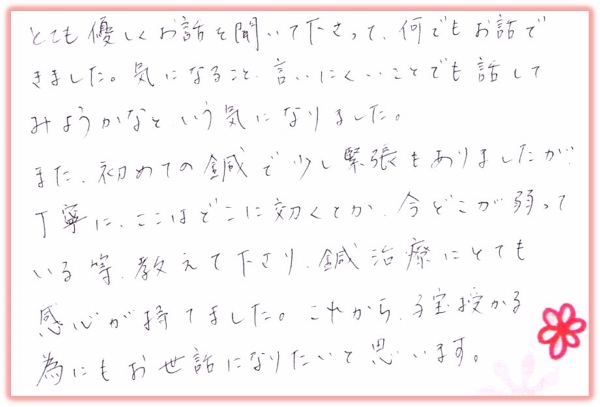 とても優しくお話を聞いて下さって、何でもお話で
きました。気になること、言いにくいことでも話して
みようかなという気になりました。
また、初めての鍼で少し緊張もありましたが、
丁寧に、ここはどこに効くとか、今どこが弱って
いる等、教えて下さり、鍼治療にとても
感心が持てました。これから、子宝授かる
為にもお世話になりたいと思います。